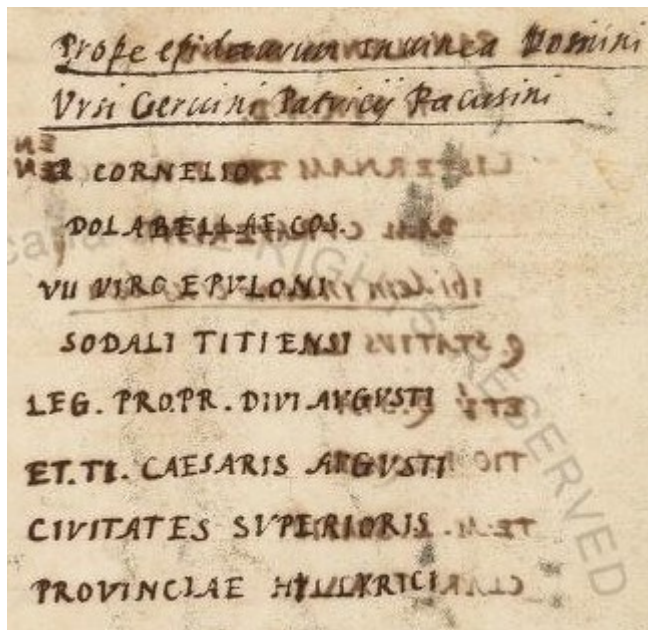 Prope epidaurum in vinea Domini
Vrsi Gervini Patricij Racusini
P CORNELIO
DOLABELLAE COS.
VII VIRO EPVLONI
SODALI TITIENSI
LEG. PRO.PR. DIVI AVGVSTI
ET.TI. CAESARIS AVGVSTI
CIVITATES SVPERIORIS
PROVINCIAE HILLYRICI
RIGHTS RESERVED